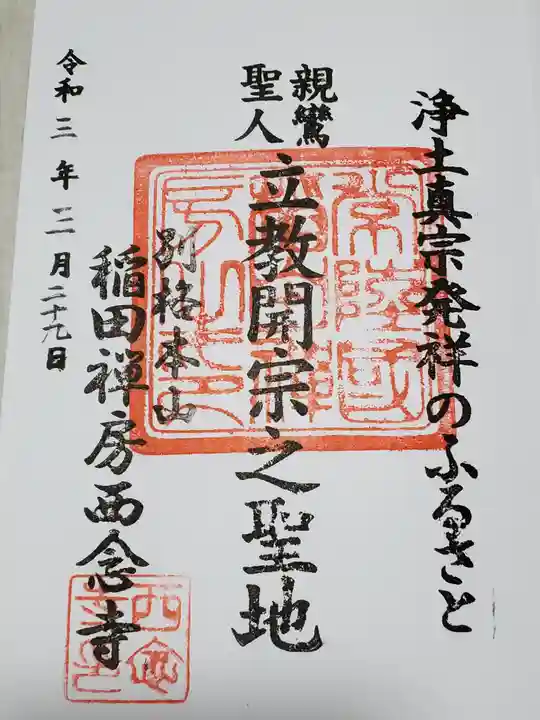 浄土真宗発祥のふるさと
親鸞
聖人
立教開宗之聖地
別格本山
稲田禅房西念寺
令和三年三月二十九日